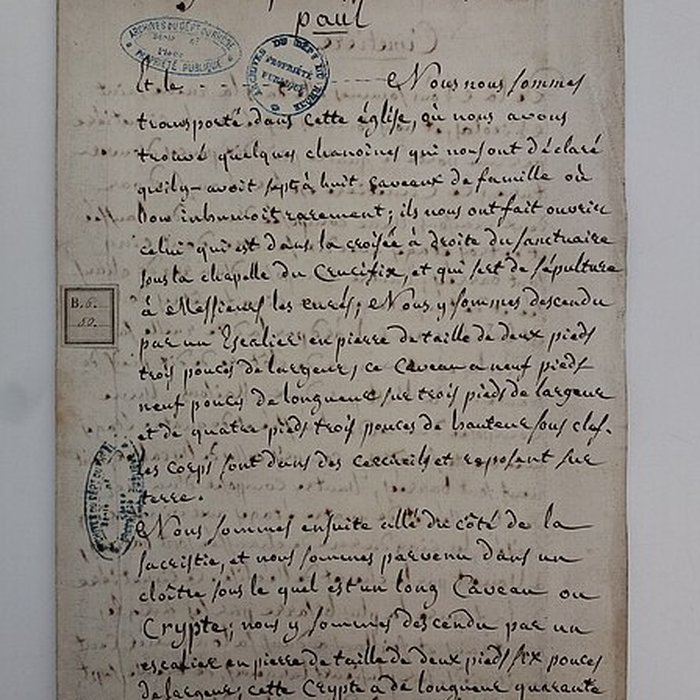 paul
ARCHIVES DU DÉPT DU RHÔNE
PROPRIÉTÉ PUBLIQUE
ARCHIVES DU DÉPT DU RHÔNE
PROPRIÉTÉ PUBLIQUE
Et le - - - - - - - - Nous nous sommes
transporté dans cette église, où nous avons
trouvé quelques chanoines qui nous ont déclaré
qu'ily-avoit sept à huit caveaux de famille où
lon inhumoit rarement; ils nous ont fait ouvrir
celui qui est dans la croisée à droite du sanctuaire
sous la chapelle du Crucifix, et qui sert de sépulture
à Messieurs les curés; Nous y sommes descendu
par un Escalier en pierre de taille de deux pieds
trois pouces de largeur, ce Caveau a neuf pieds
neuf pouces de longueur sur trois pieds de largeur
et de quatre pieds trois pouces de hauteur sous clef.
Les corps sont dans des cercueils et reposent sur
terre.
Nous sommes ensuite allé du côté de la
sacristie, et nous sommes parvenu dans un
cloître sous le quel est un long Caveau ou
Crypte; nous y sommes descendu par un
escalier en pierre de taille de deux pieds six pouces
de largeur, cette Crypte a de longueur quarante
B.6.
50.